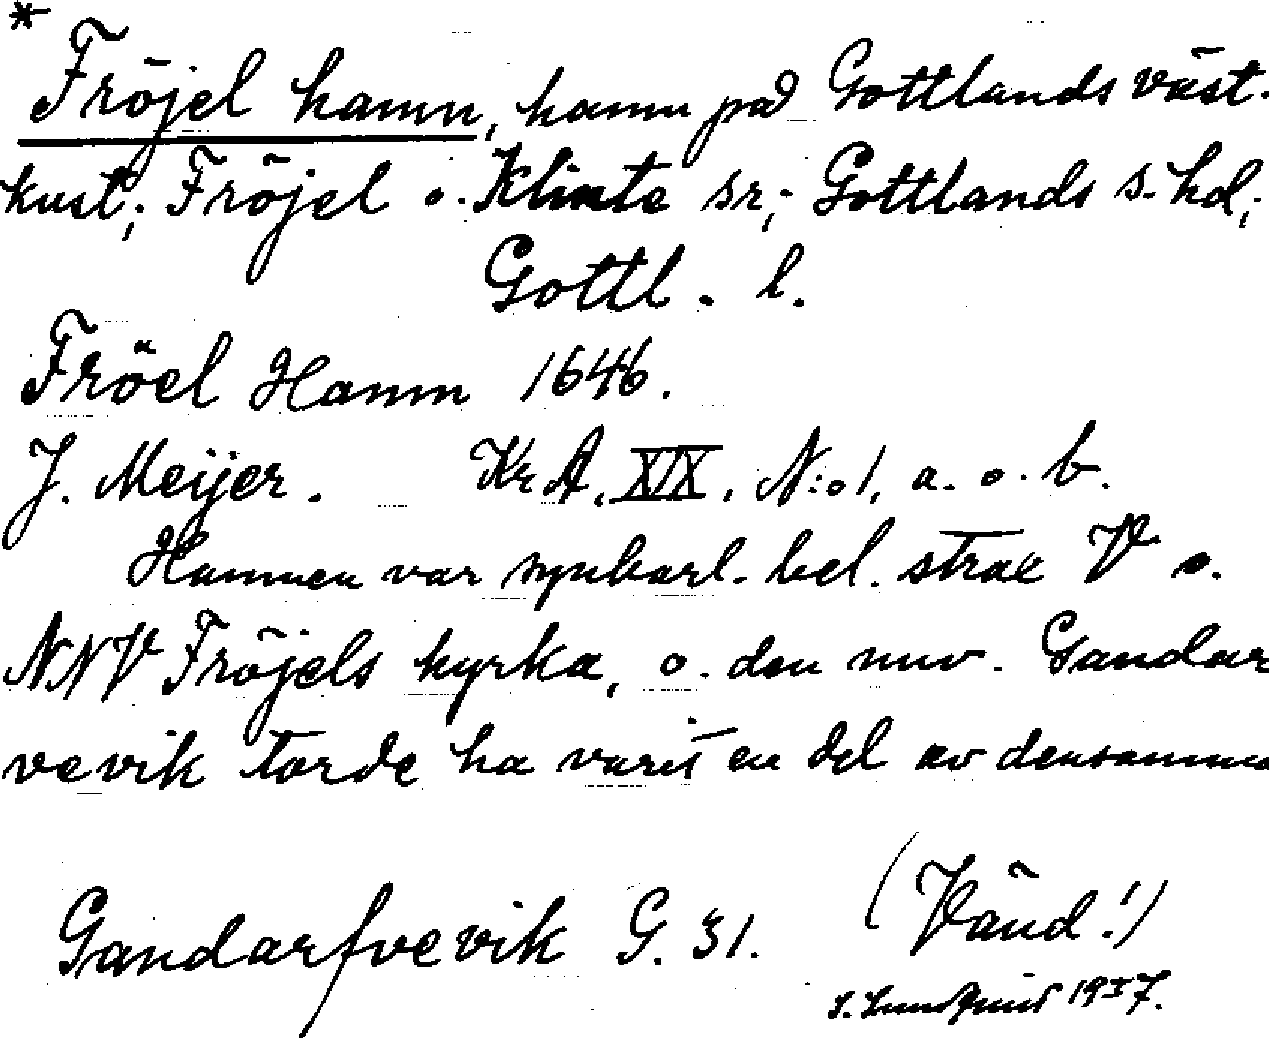 * Fröjel hamn, hamn på Gottlands väst-
kust; Fröjel o. Klinte sr; Gottlands s. hd;
Gottl. l.
Fröel Hamn 1646.
J. Meijer. KrA, XIX, N:o 1, a. o. b.
Hamnen var synbarl. bel. strax V o.
NNV Fröjels kyrka, o. den nuv. Gandar
vevik torde ha varit en del av densamma
Gandarfvevik G. 31. (Vänd!)
I. Lundquist 1937.